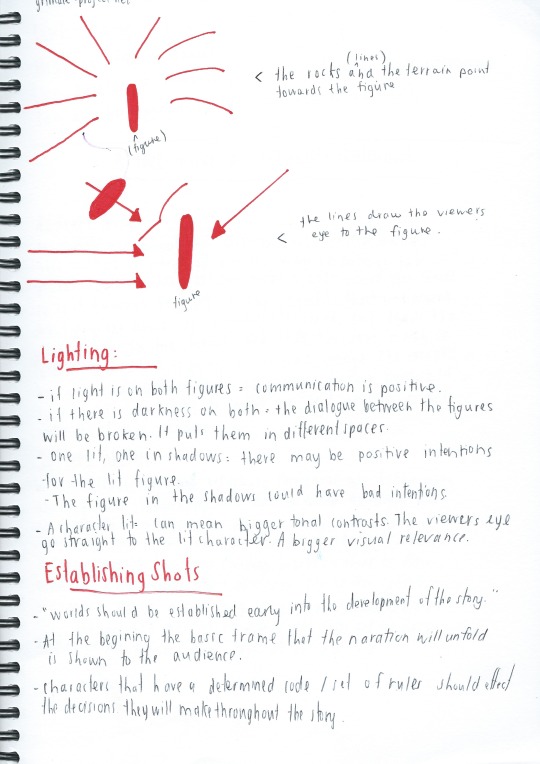 (lines)
< the rocks and the terrain point
towards the figure
(figure)
the lines draw the viewers
< eye to the figure.
figure
Lighting:
- if light is on both figures = communication is positive.
- if there is darkness on both = the dialogue between the figures
will be broken. It puts them in different spaces.
- one lit, one in shadows = there may be positive intentions
for the lit figure.
- The figure in the shadows could have bad intentions.
- A character lit = can mean bigger tonal contrasts. The viewers eye
go straight to the lit character. A bigger visual relevance.
Establishing Shots
- "Worlds should be established early into the development of the story."
- At the begining the basic frame that the naration will unfold
is shown to the audience.
- Characters that have a determined code / set of rules should effect
the decisions they will make throughout the story.